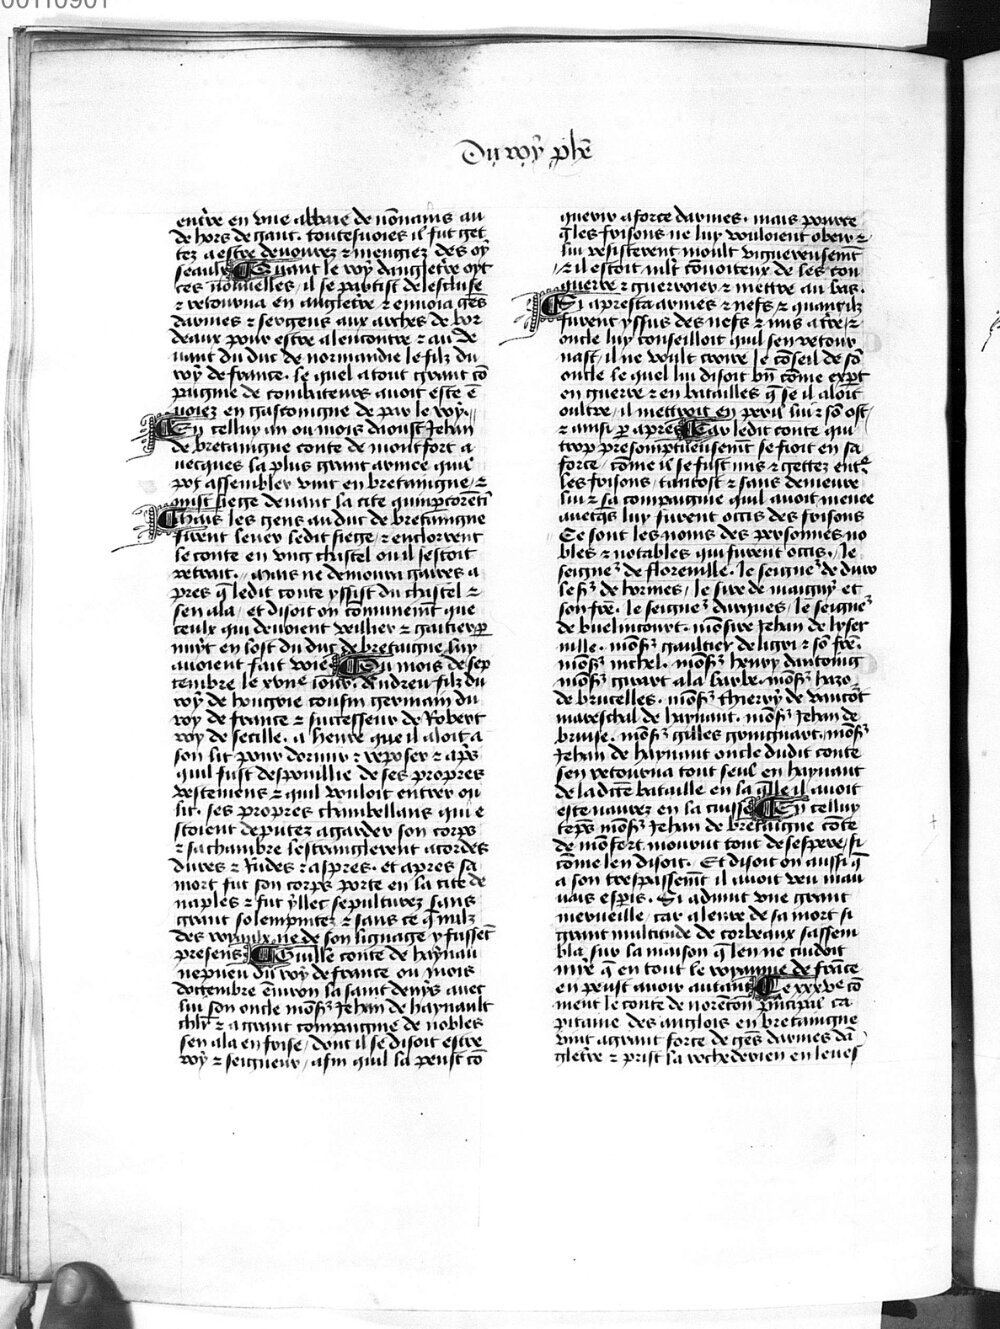 00110901
Du roy phẽ
entre en vne abbaie de nõnains au
de hors de gant. toutesuoies il fut get
tez a estre deuourez ⁊ mengiez des oy
seaulx Quant le roy dangletre oyt
ces nouuelles / il se partist de lescluse
⁊ retourna en angletre ⁊ enuoia gẽs
darmes ⁊ sergens aux arches de bor
deaux pour estre alencontre ⁊ au de
uant du duc de normandie le filz du
roy de france. le quel a tout grant cõ
paignie de combateurs auoit este ẽ
uoiez en gascongne de par le roy.
En celluy an ou mois daoust Jehan
de bretaingne conte de montfort a
uecques la plus grant armee quil
pot assembler vint en bretaingne / ⁊
mist siege deuant la cite quimpcorẽti
Mais les gens au duc de bretaingne
firent leuer ledit siege / ⁊ enclorrent
le conte en vng chastel ou il sestoit
retrait. Mais ne demoura gaires a
pres q̃ ledit conte yssist du chastel ⁊
sen ala / et disoit on cõmunemt que
ceulx qui deuoient veillier ⁊ gaitier p
nuyt en lost du duc de bretaigne luy
auoient fait voie Ou mois de sep
tembre le xvne iour. Andreu filz du
roy de hongrie cousin germain du
roy de france ⁊ successeur de Robert
roy de secille. a heure que il aloit a
son lit pour dormir ⁊ reposer ⁊ aps
quil fust despouillie de ses propres
vestemens ⁊ quil vouloit entrer ou
lit. ses propres chambellans qui e
stoient deputez a garder son corps
⁊ sa chambre lestranglerent a cordes
dures ⁊ Rudes ⁊ aspres. et apres sa
mort fut son corps porte en la cite de
naples ⁊ fut yllec sepulturez sans
grant solempnite ⁊ sans ce q̃ nulz
des royaulx ne de son lignage y fussẽt
presens Guille conte de haynau
nepueu du roy de france ou mois
doctembre ẽuiron la saint denys auec
lui son oncle mõsr Jehan de haynault
chlr ⁊ a grant compaignie de nobles
sen ala en frise / dont il se disoit estre
roy ⁊ seigneur / afin quil la peust cõ
querir a force darmes. mais pource
q̃ les frisons ne luy vouloient obeir ⁊
lui resisterent moult vigueureusemt
/ ⁊ il estoit mlt couoiteux de les con
querre ⁊ guerroier ⁊ mettre au bas.
Si apresta armes ⁊ nefs ⁊ quant ilz
furent yssus des nefs ⁊ mis a tre / ⁊
oncle luy conseilloit quil sen retour
nast / il ne voult croire le cõseil de sõ
oncle le quel lui disoit bñ cõme expt
en guerre ⁊ en batailles q̃ se il aloit
oultre / il mettroit en peril lui ⁊ sõ ost /
⁊ ainsi p apres Car ledit conte qui
trop presomptueusemt se fioit en sa
force / cõme il se fust mis ⁊ gettez entr
les frisons / tantost ⁊ sans demeure
lui ⁊ sa compaignie quil auoit menee
auecqs luy furent occis des frisons
Ce sont les noms des personnes no
bles ⁊ notables qui furent occis. le
seigner de floreuille. le seigner de duw
le sr de hornes / le sire de maigny et
son fre. le seigner darques / le seigner
de buelincourt. mõsire Jehan de lyser
uille. mõsr gaultier de ligni ⁊ sõ fre.
mõsr michel. mõsr henry dantoing
mõsr girart a la barbe. mõsr hazo
de brucelles. mõsr thierry de vaucõt
mareschal de haynaut. mõsr Jehan de
bruise. mõsr gilles groingnart. mõsr
Jehan de haynaut oncle dudit conte
sen retourna tout seul en haynaut
de ladicte bataille en la q̃lle il auoit
este naurez en la cuisse En celluy
tẽps mõsr Jehan de bretaigne cõte
de mõfort. mourut tout desespere / si
cõme len disoit. Et disoit on aussi q̃
a son trespassemt il auoit veu mau
uais esperis. Si aduint vne grant
merueille / car a leure de sa mort si
grant multitude de corbeaux sassem
bla sur la maison q̃ len ne cuidoit
mye q̃ en tout le royaume de frãce
en peust auoir autant Ce xxxve cõ
ment le conte de norentõn principal ca
pitaine des anglois en bretaingne
vint a grant force de gẽs darmes dã
gletre ⁊ prist la rochederien en leues